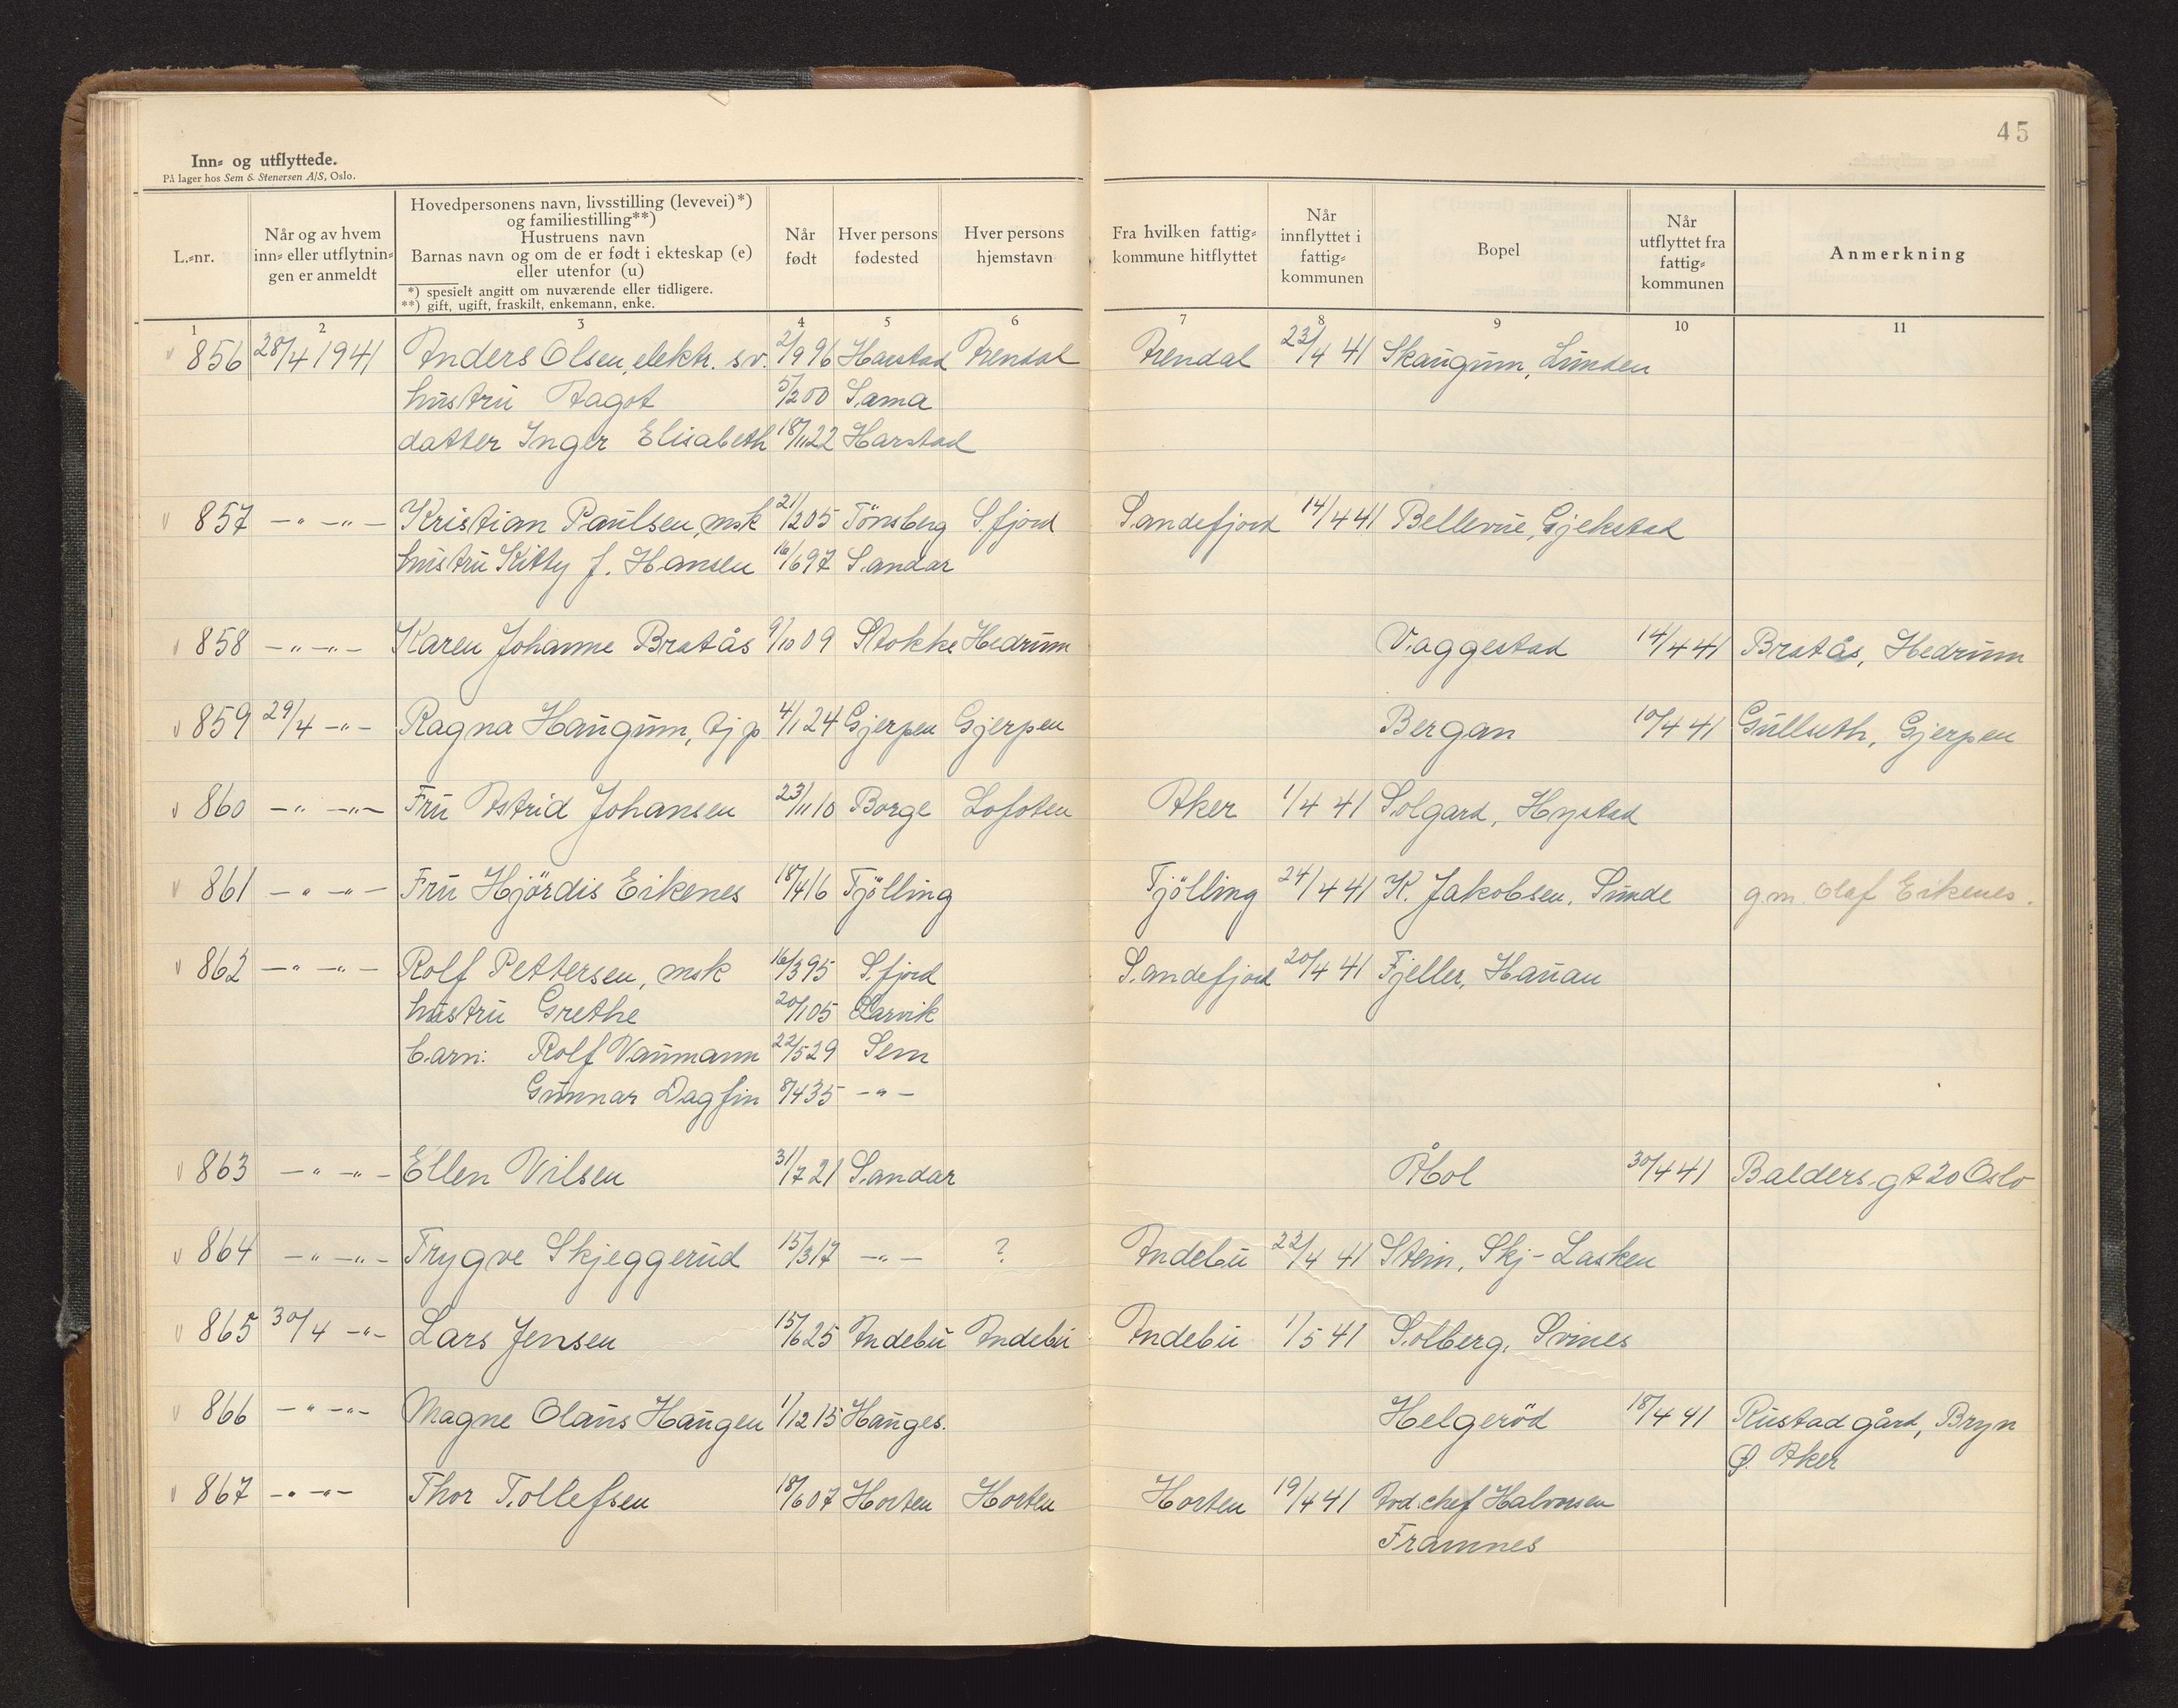 45
Inn- og utflyttede.
På lager hos Sem & Stenersen A/S, Oslo.
L.-nr.
Når og av hvem inn- eller utflytnin- gen er anmeldt
Hovedpersonens navn, livsstilling (levevei)*)
og familiestilling**)
Hustruens navn
Barnas navn og om de er født i ekteskap (e)
eller utenfor (u)
*) spesielt angitt om nuværende eller tidligere.
**) gift, ugift, fraskilt, enkemann, enke.
Når født
Hver persons fødested
Hver persons hjemstavn
Fra hvilken fattig- kommune hitflyttet
Når innflyttet i fattig- kommunen
Bopel
Når utflyttet fra fattig- kommunen
Anmerkning
1 2 3 4 5 6 7 8 9 10 11
v 856 28/4 1941 Anders Olsen, elektr. sv. 2/9 96 Harstad Arendal Arendal 23/4 41 Skaugum, Lunden
hustru Aagot 5/2 00 Sama
datter Inger Elisabeth 18/11 22 Harstad
v 857 -"- -"- Kristian Paulsen, msk 21/2 05 Tönsberg S.fjord Sandefjord 14/4 41 Bellevue, Gjekstad
hustru Kitty f. Hansen 16/6 97 Sandar
v 858 -"- -"- Karen Johanne Bratås 9/10 09 Stokke Hedrum Vaggestad 14/4 41 Bratås, Hedrum
v 859 29/4 -"- Ragna Haugum, tjp 4/1 24 Gjerpen Gjerpen Bergan 10/4 41 Gulseth, Gjerpen
v 860 -"- -"- Fru Astrid Johansen 23/11 10 Borge Lofoten Aker 1/4 41 Solgard, Hystad
v 861 -"- -"- Fru Hjördis Eikenes 18/4 16 Tjölling Tjölling 24/4 41 K. Jakobsen, Sunde g.m. Olaf Eikenes.
v 862 -"- -"- Rolf Pettersen, msk 16/3 95 S.fjord Sandefjord 20/4 41 Fjeller, Hauan
hustru Grethe 20/1 05 Larvik
barn: Rolf Vaumann 22/5 29 Sem
Gunnar Dagfin 8/4 35 -"-
v 863 -"- -"- Ellen Nilsen 31/7 21 Sandar Åbol 30/4 41 Balders gt 20 Oslo
v 864 -"- -"- Trygve Skjeggerud 15/3 17 -"- ? Andebu 22/4 41 Stein, Skj-Lasken
v 865 30/4 -"- Lars Jensen 15/6 25 Andebu Andebu Andebu 1/5 41 Solberg, Svines
v 866 -"- -"- Magne Olaus Haugen 1/12 15 Hauges. Helgeröd 18/4 41 Rustad gård, Bryn
Ø. Aker
v 867 -"- -"- Thor Tollefsen 18/6 07 Horten Horten Horten 19/4 41 Avd.chef Halvorsen
Framnes